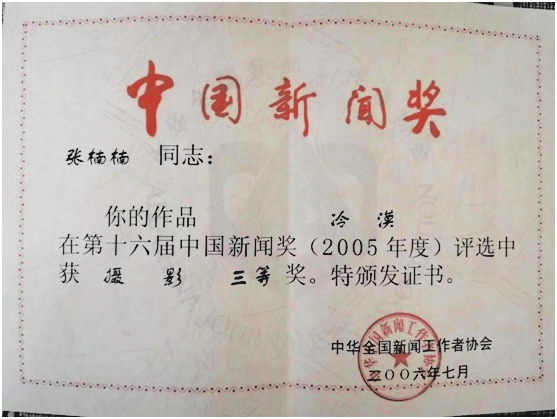 中国新闻奖
张楠楠 同志：
你的作品 冷漠
在第十六届中国新闻奖（2005年度）评选中
获 摄影 三等 奖。特颁发证书。
中华全国新闻工作者协会
二00六年七月